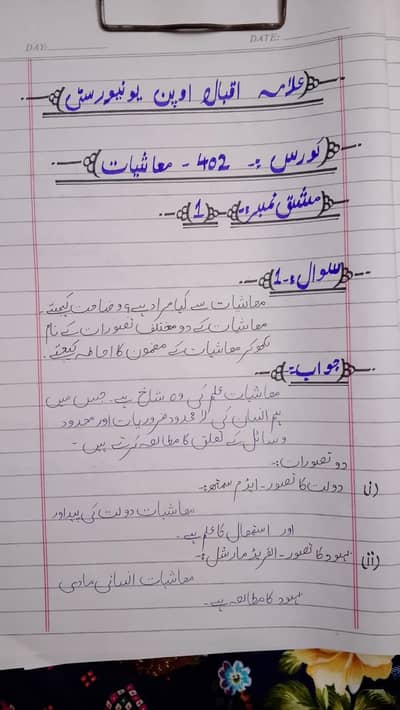 DAY: DATE:
علامہ اقبال اوپن یونیورسٹی
کورس :- 402 - معاشیات
مشق نمبر :- 1
سوال :- 1
معاشیات سے کیا مراد ہے؟ وضاحت کیجئے۔
معاشیات کے دو مختلف تصورات کے نام
لکھ کر معاشیات کے مضمون کا احاطہ کیجئے۔
جواب :-
معاشیات علم کی وہ شاخ ہے۔ جس میں
ہم انسان کی لا محدود ضروریات اور محدود
وسائل کے تعلق کا مطالعہ کرتے ہیں۔
دو تصورات :-
(i) دولت کا تصور - ایڈم سمتھ :-
معاشیات دولت کی پیداور
اور استعمال کا علم ہے۔
(ii) بہبود کا تصور - الفریڈ مارشل :-
معاشیات انسانی مادی
بہبود کا مطالعہ ہے۔